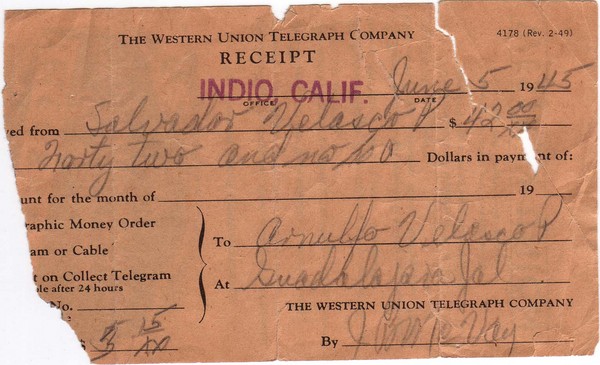 THE WESTERN UNION TELEGRAPH COMPANY
4178 (Rev. 2-49)
RECEIPT
INDIO, CALIF. June 5 1945
OFFICE DATE
ed from Salvador Velasco $ 42 00/xx
Forty two and no Dollars in payment of:
unt for the month of 19
raphic Money Order
am or Cable
t on Collect Telegram
le after 24 hours
No.
To Arnulfo Velasco
At Guadalajara Jal
THE WESTERN UNION TELEGRAPH COMPANY
$ 5 15/xx
By McVay